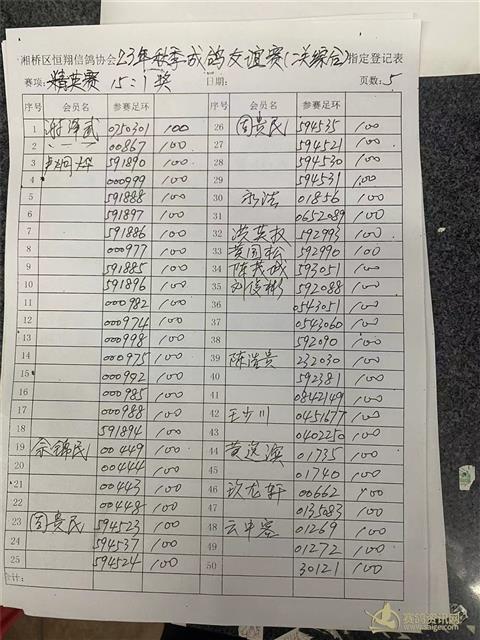 湘桥区恒翔信鸽协会23年秋季成鸽友谊赛(二关综合)指定登记表
赛项: 精英赛 15:1奖 日期: 页数: 5
序号 会员名 参赛足环 序号 会员名 参赛足环
1 谢泽武 0750301 100 26 周贵民 594535 100
2 00867 100 27 594521 100
3 591890 100 28 594530 100
4 000999 100 29 594531 100
5 591888 100 30 永浩 01856 100
6 591897 100 31 0652089 100
7 591886 100 32 黄英权 592993 100
8 000977 100 33 黄国松 592990 100
9 591885 100 34 陈茂城 593051 100
10 591896 100 35 刘俊彬 592088 100
11 000982 100 36 0543051 100
12 000974 100 37 0543060 100
13 000998 100 38 592090 100
14 000975 100 39 陈浩贵 232030 100
15 000992 100 40 592381 100
16 000985 100 41 0842149 100
17 000988 100 42 王少川 0451577 100
18 591894 100 43 0402250 100
19 余锦民 00449 100 44 01735 100
20 00444 100 45 01740 100
21 00443 100 46 玖龙轩 00662 100
22 00448 100 47 0135083 100
23 周贵民 594523 100 48 云中客 01269 100
24 594537 100 49 01272 100
25 594524 100 50 30121 100
合计:
赛鸽资讯网
www.saige.com